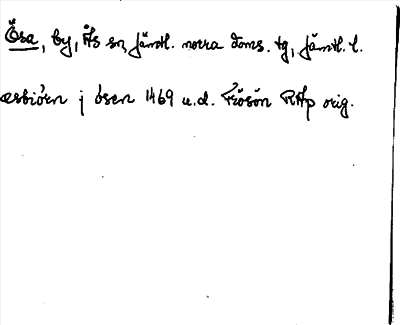 Ösa, by, Ås sn, Jämtl. norra doms. tg, Jämtl. l.
æsbiörn j ósen 1469 u.d. Frösön RAp orig.